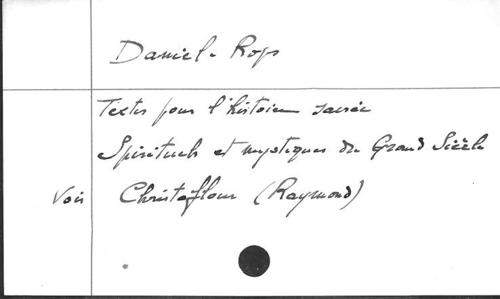 Daniel-Rops
Textes pour l'histoire sacrée
Spirituels et mystiques du Grand Siècle
Voir Christoflour (Raymond)